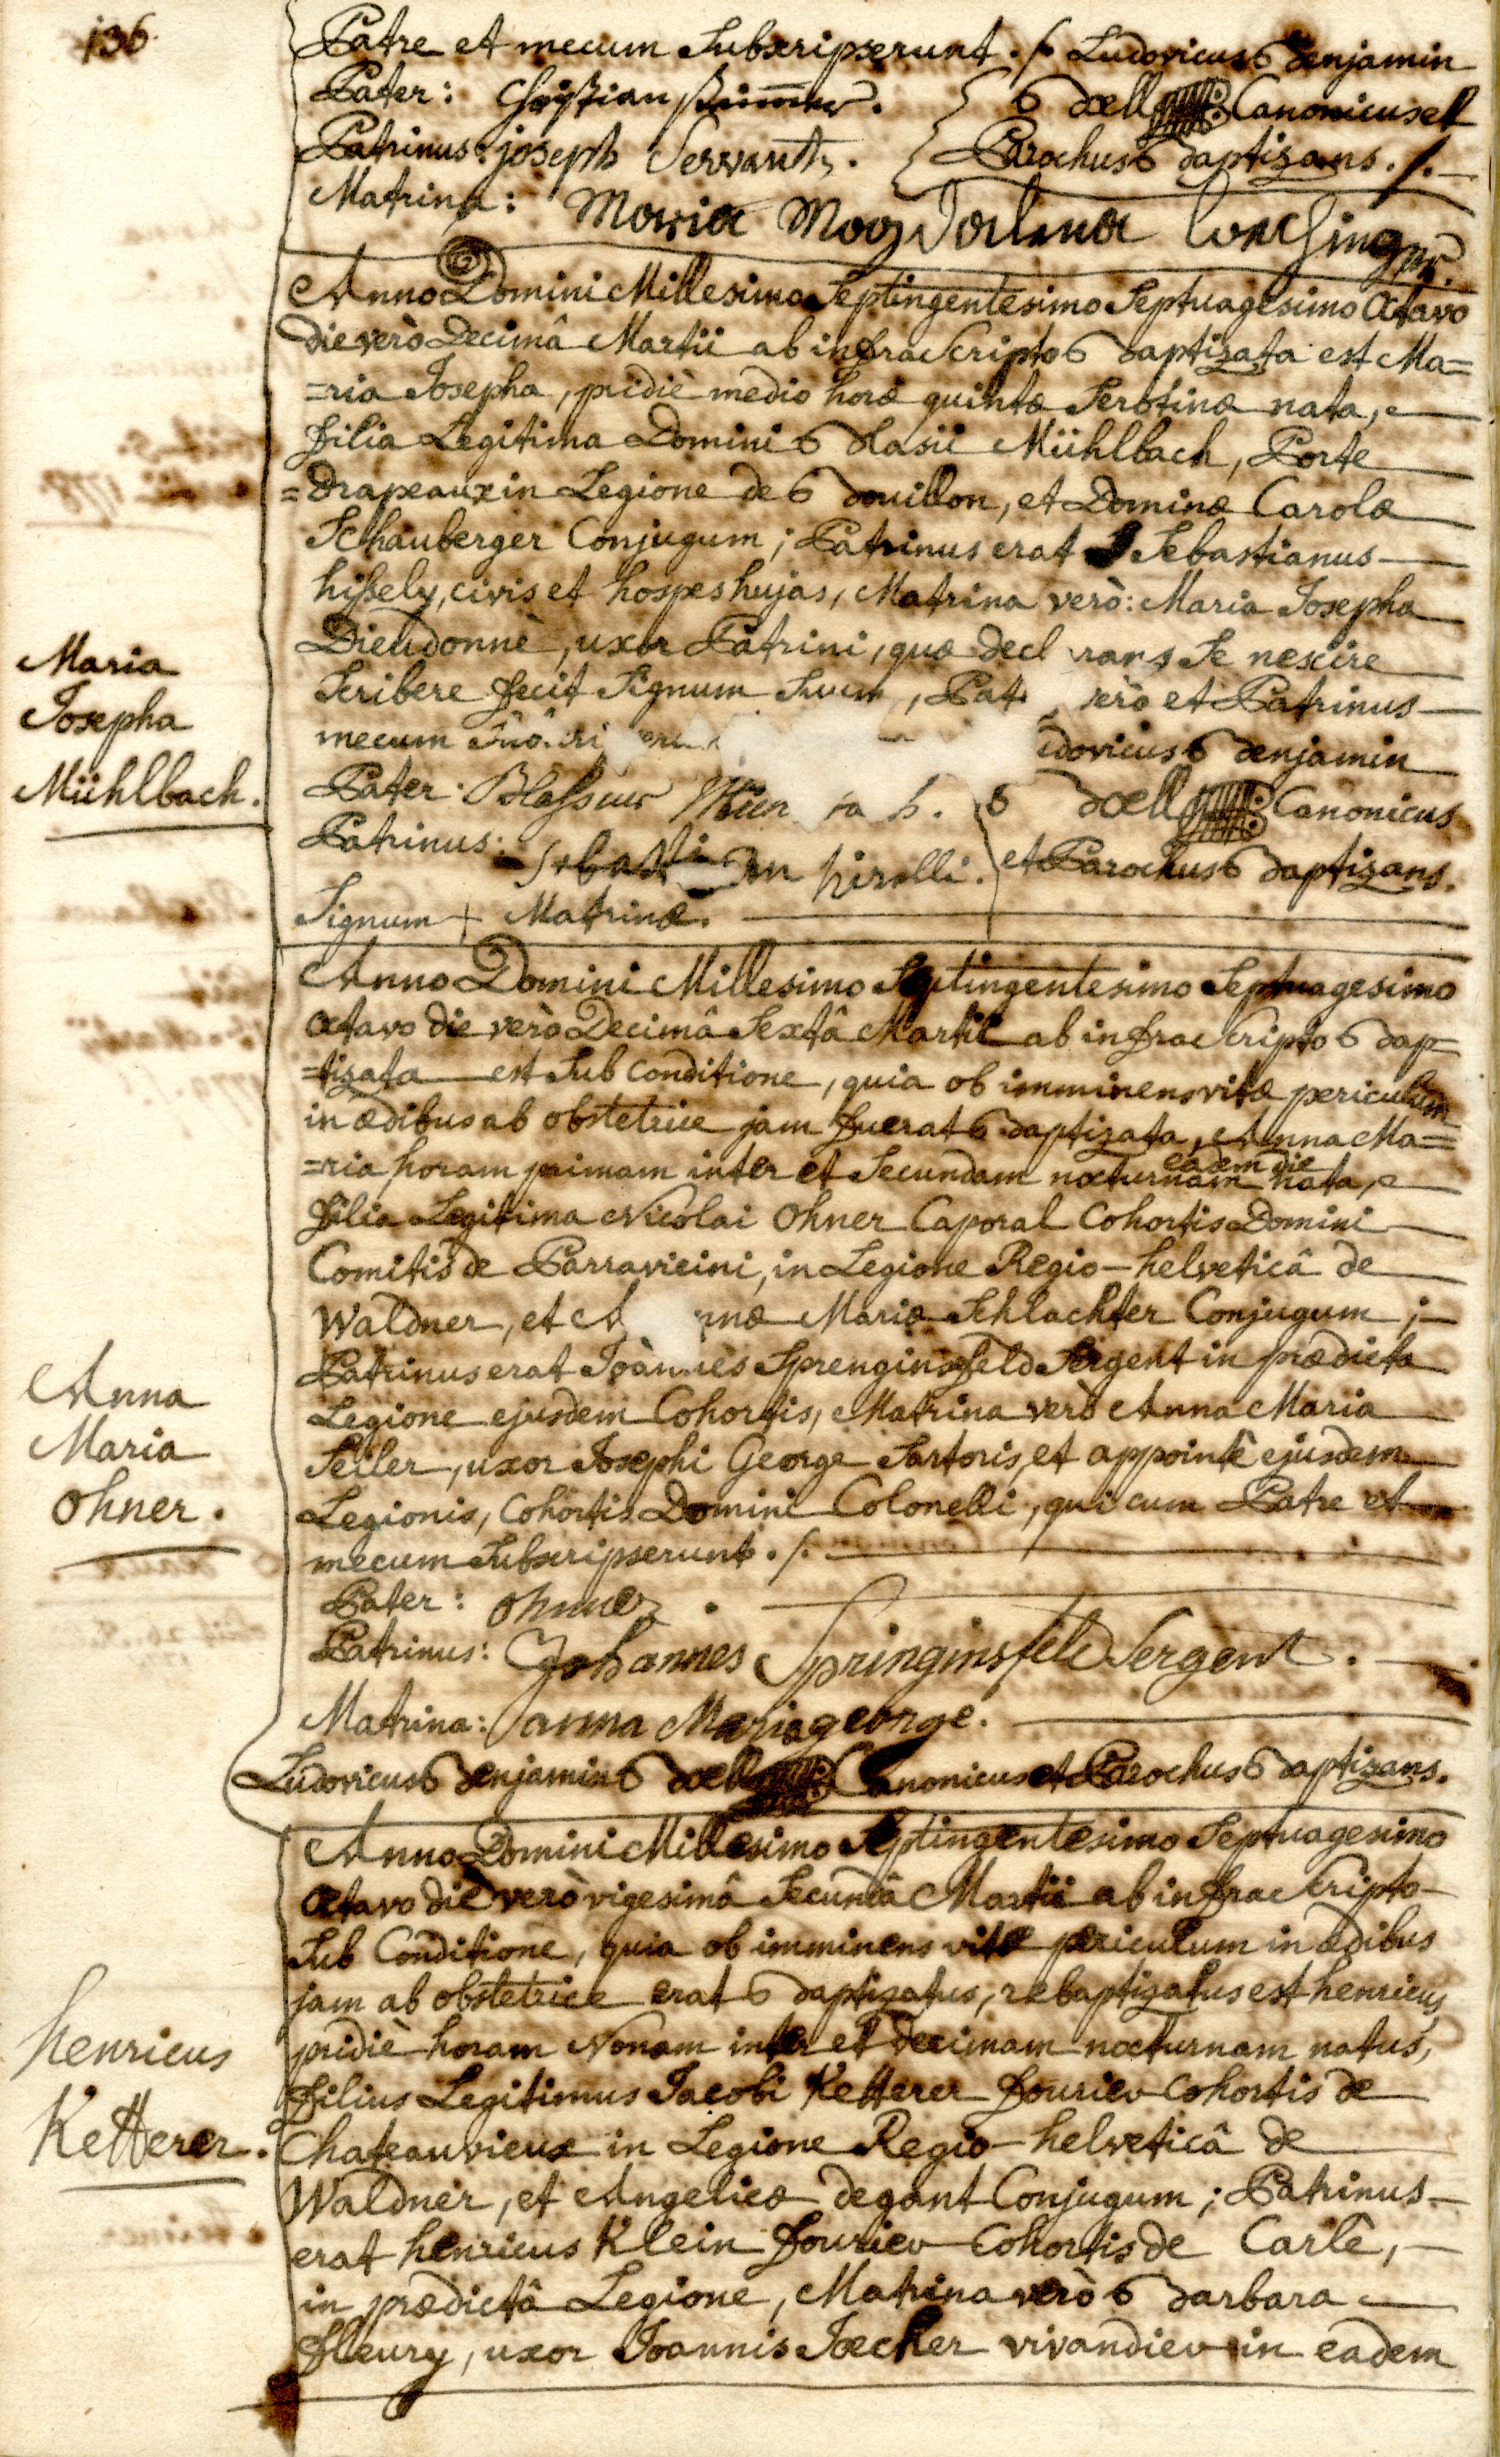 136.
Patre et mecum Subscripserunt ./. Ludovicus Benjamin
Pater: Christian
Boell Canonicus et
Patrinus: joseph Servant.
Parochus Baptizans ./.
Matrina: Maria Magdalena
Anno Domini Millesimo Septingentesimo Septuagesimo Octavo
die verò Decimâ Martii ab infra Scripto Baptizata est Ma=
=ria Josepha, pridiè medio horæ quintæ Serotinæ nata,
filia Legitima Domini Blasii Mühlbach, Porte
=Drapeaux in Legione de Bouillon, et Dominæ Carolæ
Schauberger Conjugum; Patrinus erat Sebastianus
hißely, civis et hospes hujas, Matrina verò: Maria Josepha
Dieudonnè, uxor Patrini, quæ decl rans Se nescire
Scribere fecit Signum Suum, Pat verò et Patrinus
mecum
udovicus Benjamin
Pater: Blassius
Boell Canonicus
Patrinus: Sebastian hiselli.
et Parochus Baptizans.
Signum + Matrinæ.
Maria
Josepha
Mühlbach.
Anno Domini Millesimo Septingentesimo Septuagesimo
Octavo die verò Decimâ Sextâ Martii ab infra Scripto Bap=
=tizata est Sub Conditione, quia ob imminens vitæ periculum
in ædibus ab obstetrice jam fuerat Baptizata, Anna Ma=
=ria horam primam inter et Secundam nocturnam eadem die nata,
filia Legitima Nicolai Ohner Caporal Cohortis Domini
Comitis de Parravicini, in Legione Regio-helveticâ de
Waldner, et A nnæ Mariæ Schlachter Conjugum;
Patrinus erat Joànnes Sprenginsfeld Sergent in prædicta
Legione ejusdem Cohortis, Matrina verò Anna Maria
Seiler, uxor Josephi George Sartoris, et appointè ejusdem
Legionis, Cohortis Domini Colonelli, qui cum Patre et
mecum Subscripserunt ./.
Pater: Ohnner.
Patrinus: Johannes Springinsfeld Sergent.
Matrina: anna Maria george.
Ludovicus Benjamin Boell Canonicus et Parochus Baptizans.
Anna
Maria
Ohner.
Anno Domini Millesimo Septingentesimo Septuagesimo
Octavo die verò vigesimâ Secundâ Martii ab infra Scripto
Sub Conditione, quia ob imminens vitæ periculum in ædibus
jam ab obstetrice erat Baptizatus, rebaptizatus est henricus
pridiè horam Nonam inter et decimam nocturnam natus,
filius Legitimus Jacobi Ketterer fourier Cohortis de
Chateauvieux in Legione Regio-helveticâ de
Waldner, et Angelicæ degant Conjugum; Patrinus
erat henricus Klein fourier Cohortis de Carlè,
in prædictâ Legione, Matrina verò Barbara
fleury, uxor Joannis Jæcker vivandier in eadem
henricus
Ketterer.